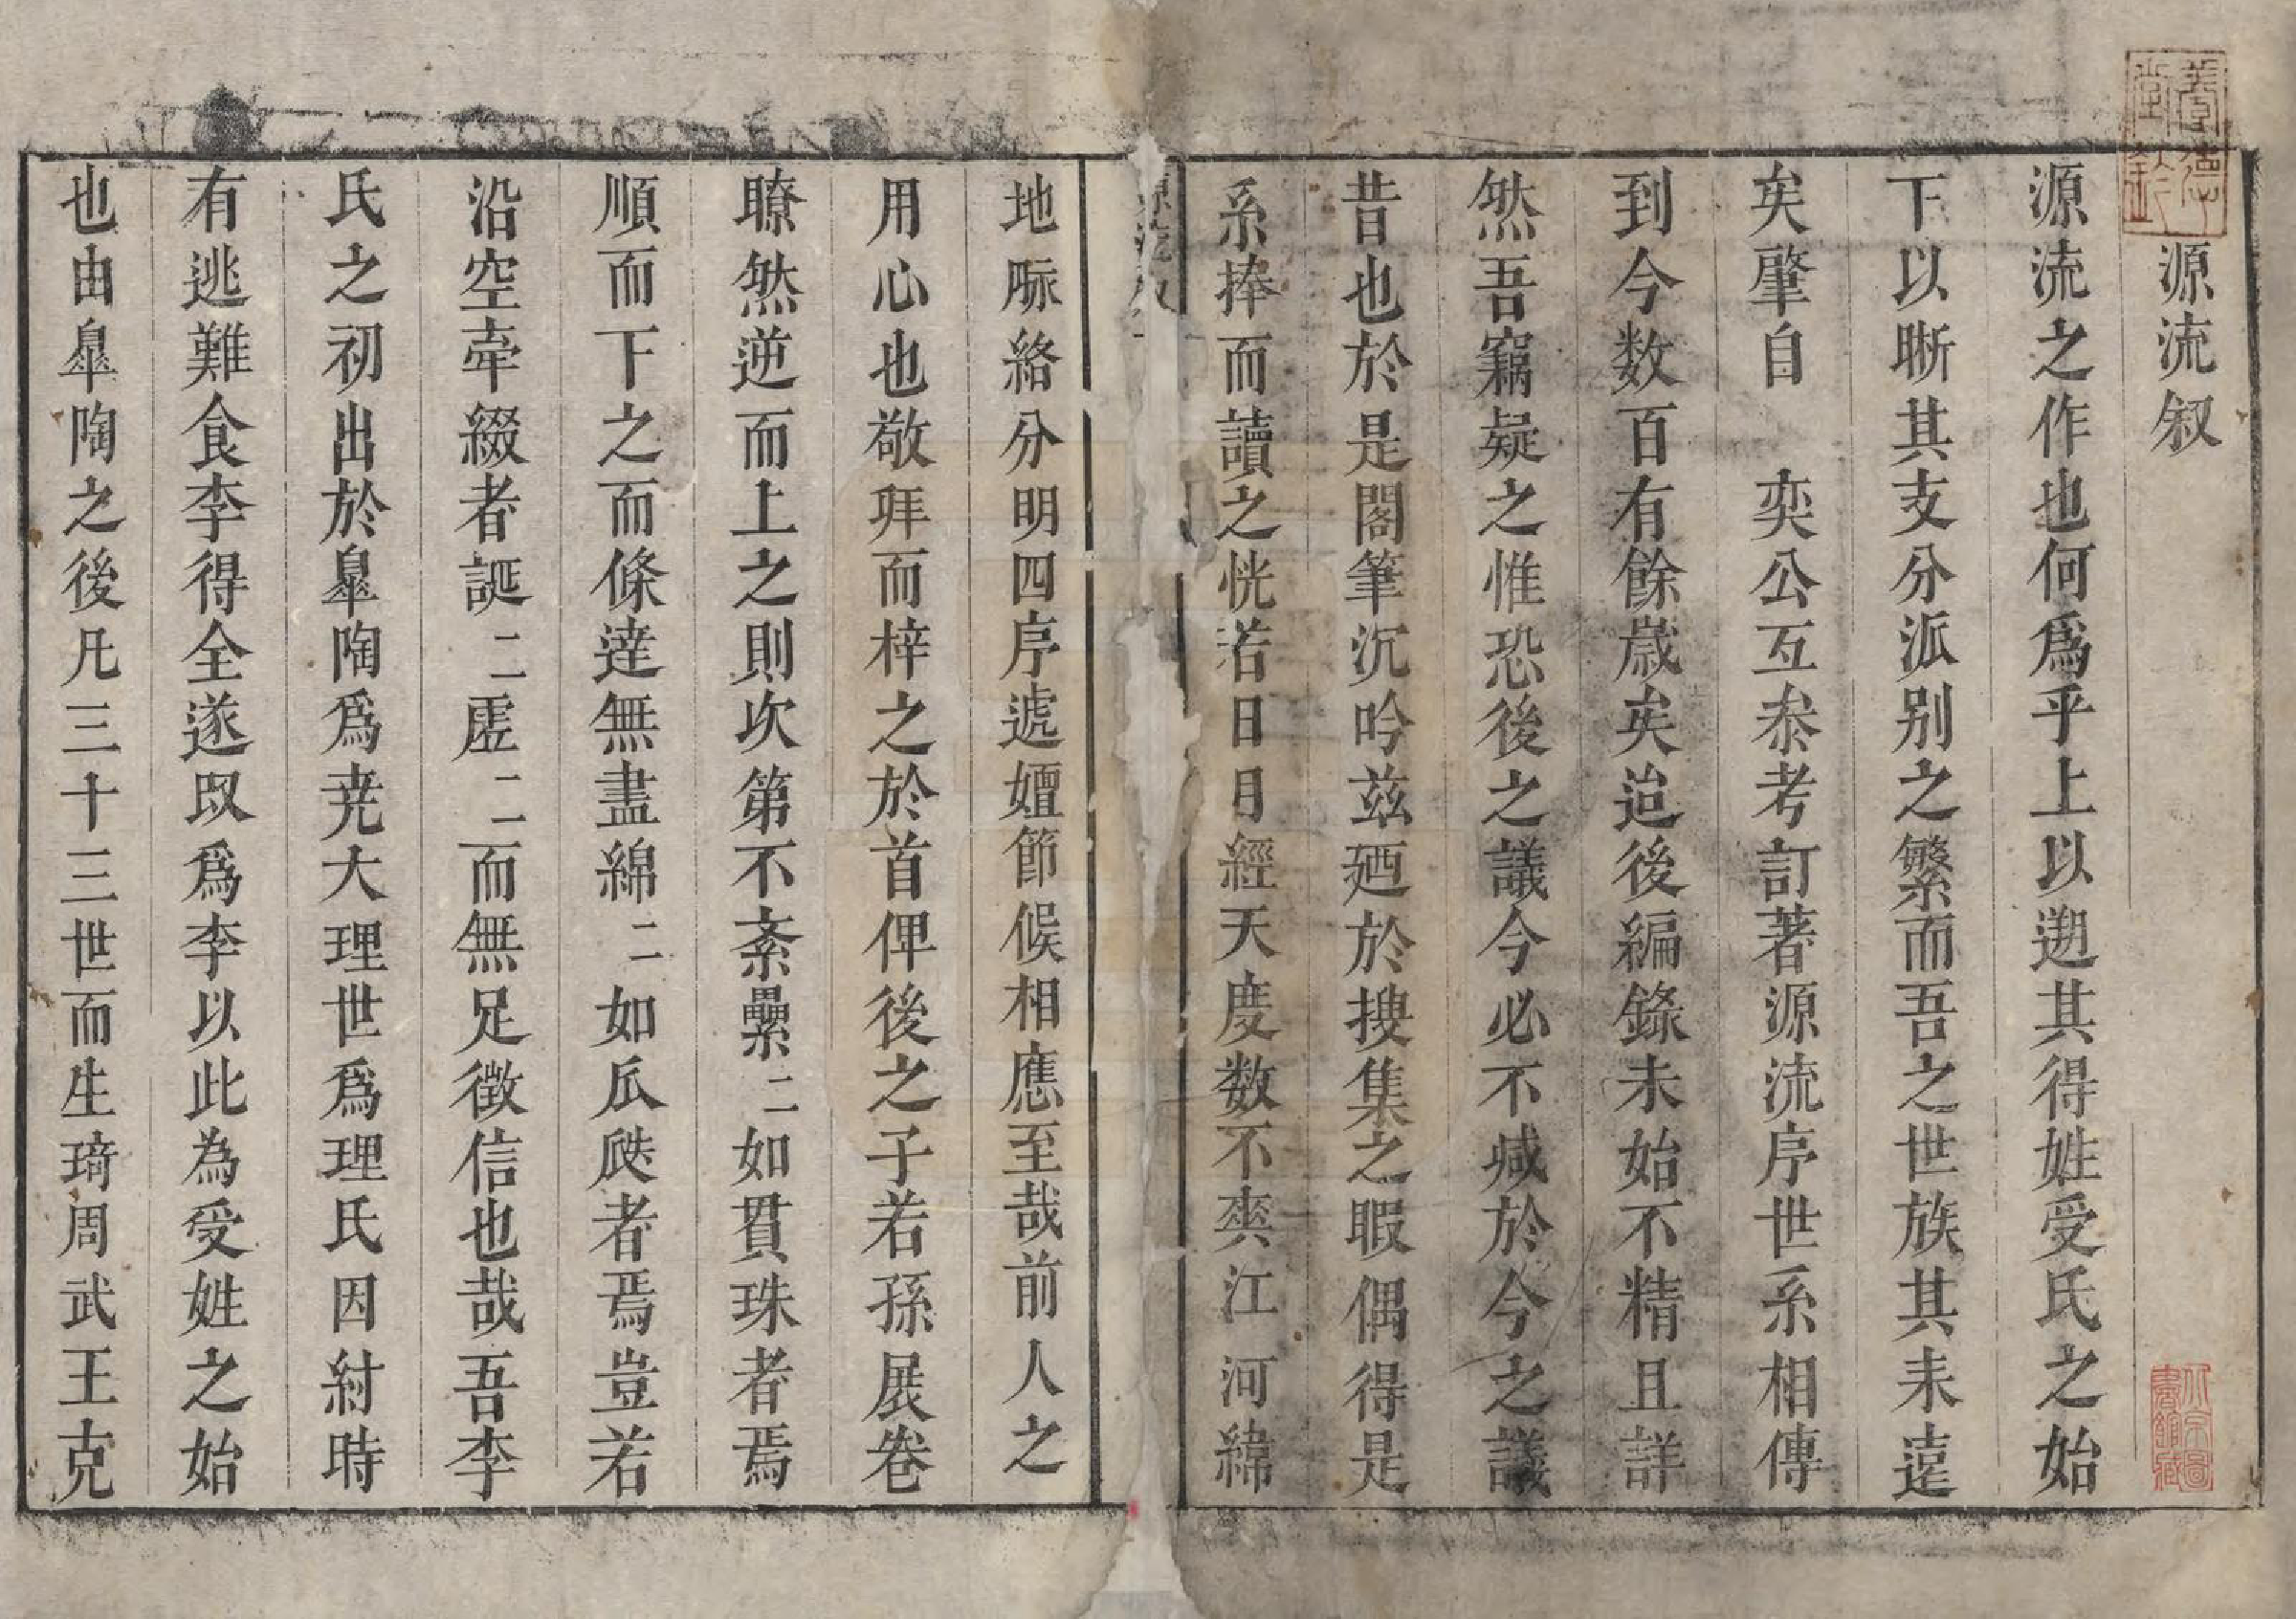 源流叙
源流之作也何爲乎上以遡其得姓受氏之始
下以晰其支分派别之繁而吾之世族其来遠
矣肇自　奕公互叅考訂著源流序世系相傳
到今数百有餘歲矣迨後編錄未始不精且詳
然吾竊疑之惟恐後之議今必不减於今之議
昔也於是閣筆沉吟兹廼於搜集之暇偶得是
系捧而讀之恍若日月經天度数不爽江河緯
地脉絡分明四序遞嬗節候相應至哉前人之
用心也敬拜而梓之於首俾後之子若孫展卷
瞭然逆而上之則次第不紊纍二如貫珠者焉
順而下之而條達無盡綿二如瓜瓞者焉豈若
沿空牽綴者誕二虚二而無足徴信也哉吾李
氏之初出於臯陶爲尭大理世爲理氏因紂時
有逃難食李得全遂改爲李以此為受姓之始
也由臯陶之後凡三十三世而生琦周武王克